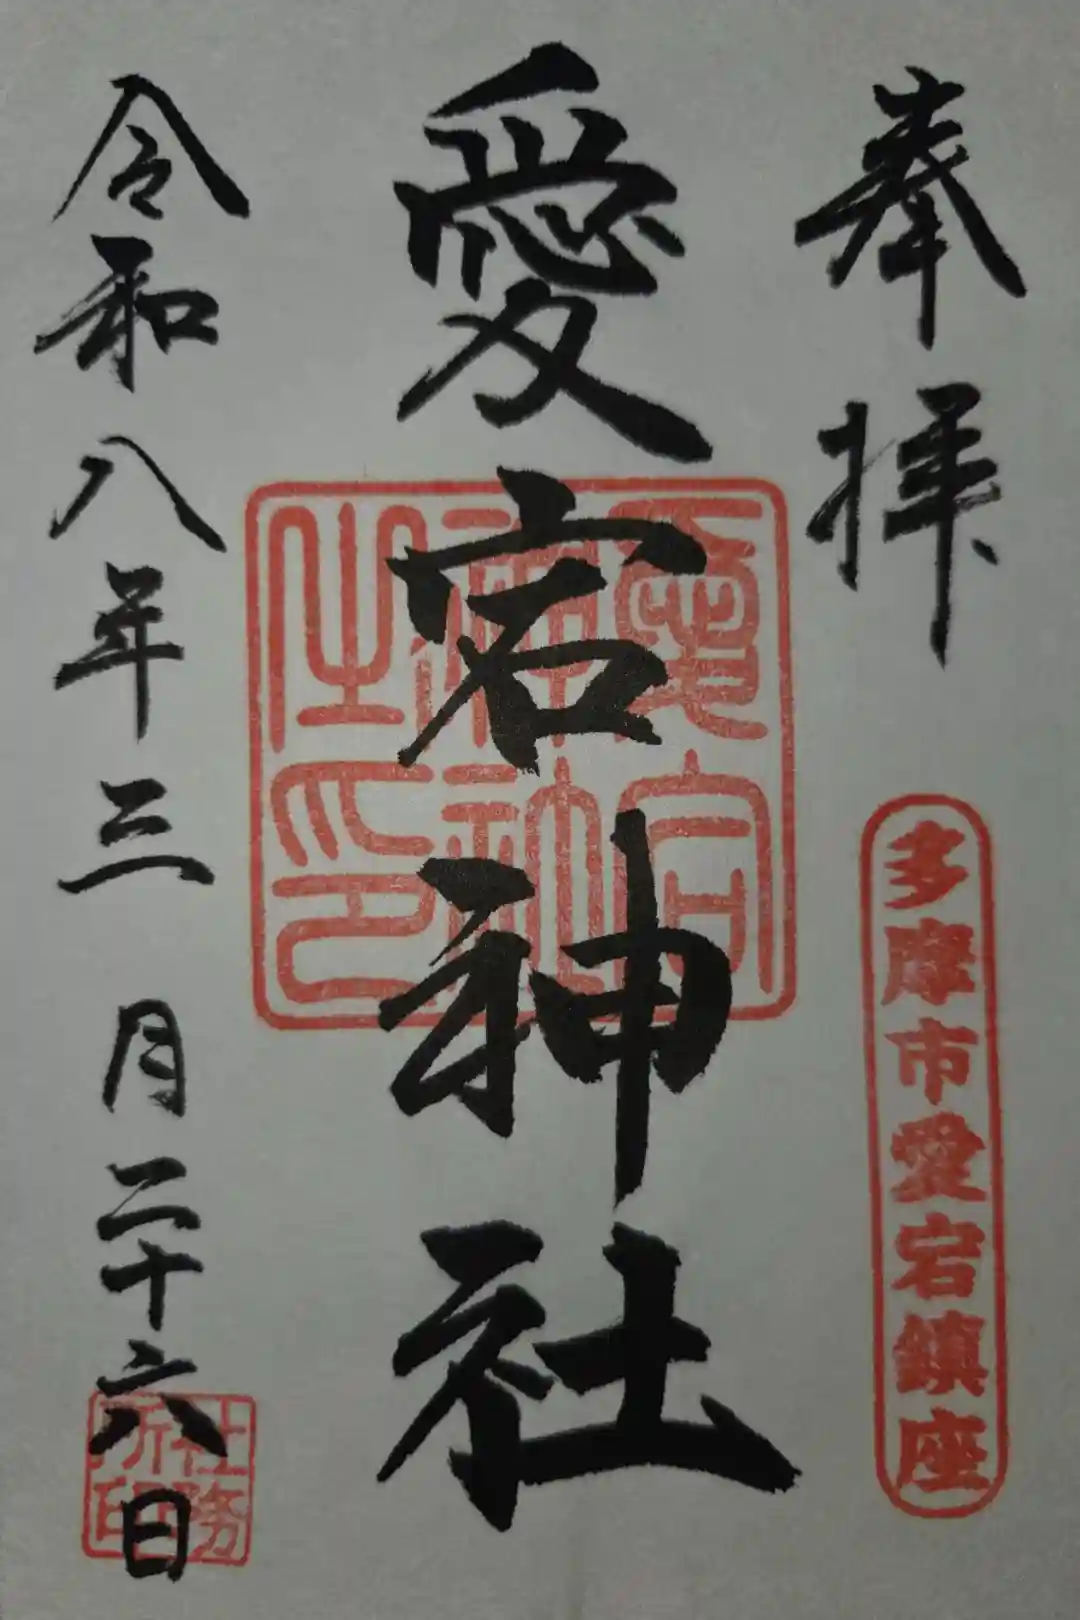 奉拝
多摩市愛宕鎮座
愛宕神社
愛宕神社神社之印
令和八年三月二十六日
社務所印